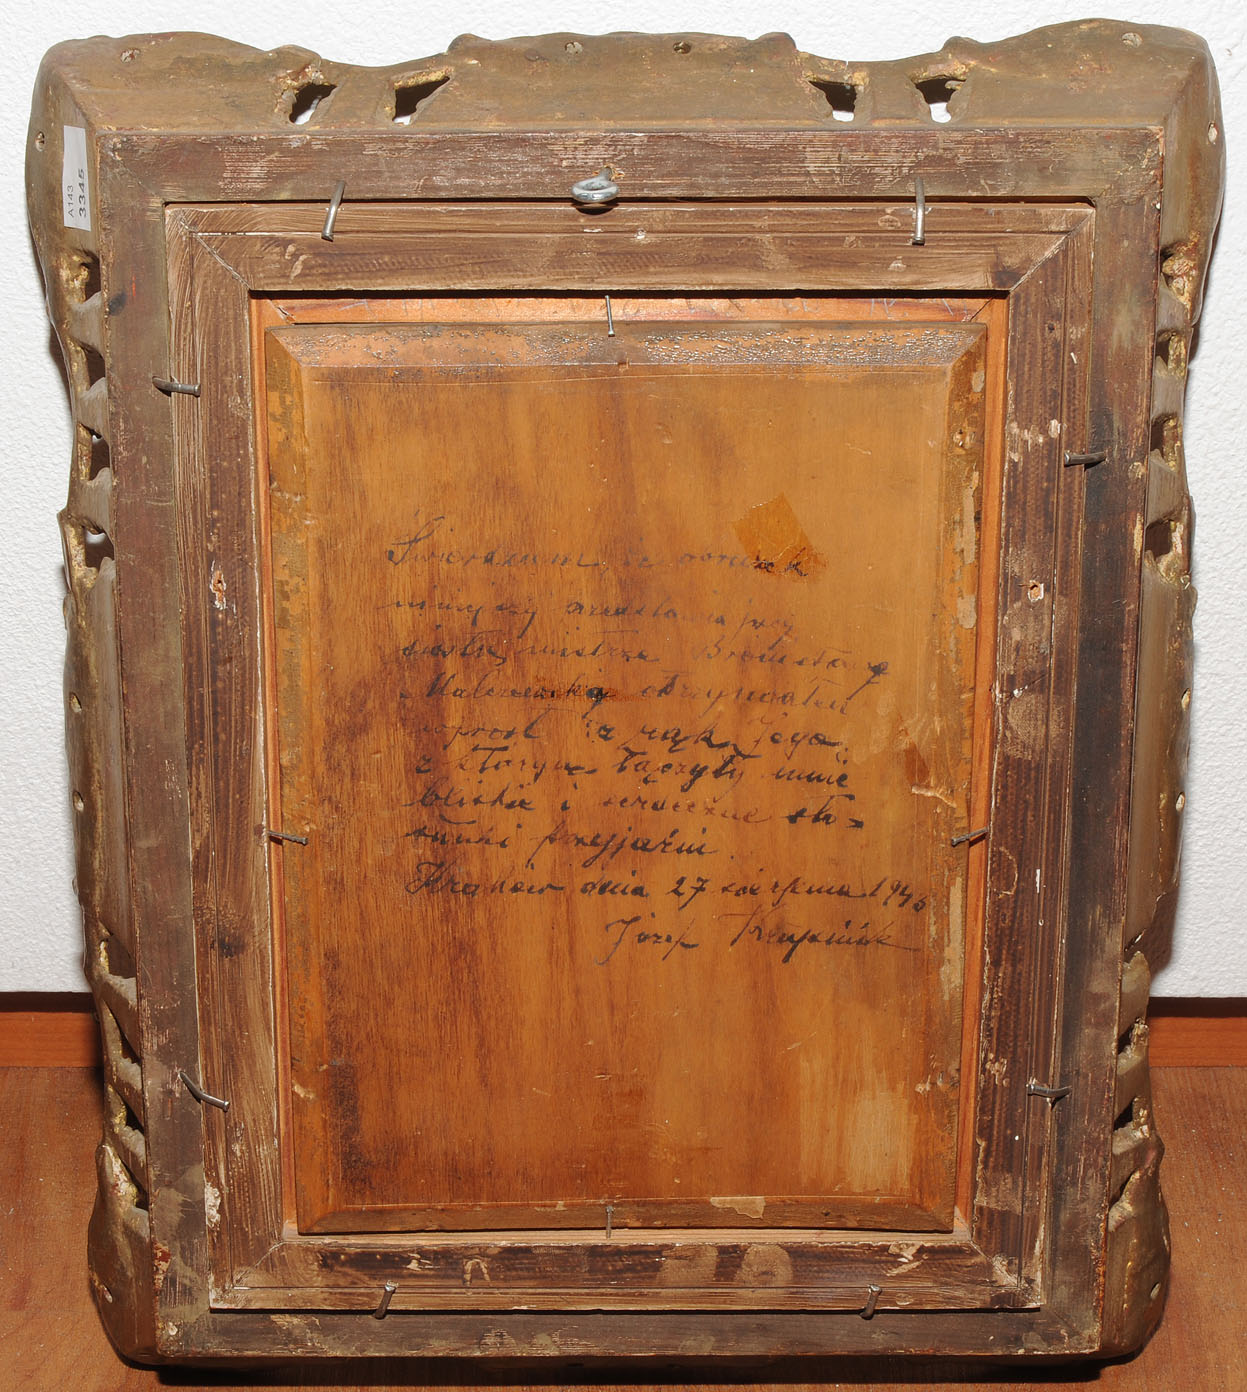 A143
3345
Świerdzam że obrazek
niniejszy przedstawiający
siostrę mistrza Bronisławę
Malczewską otrzymałem
wprost z rąk Jego
z którym łączyły mnie
bliskie i serdeczne sto-
sunki przyjaźni.
Kraków dnia 27 sierpnia 1945
Józef